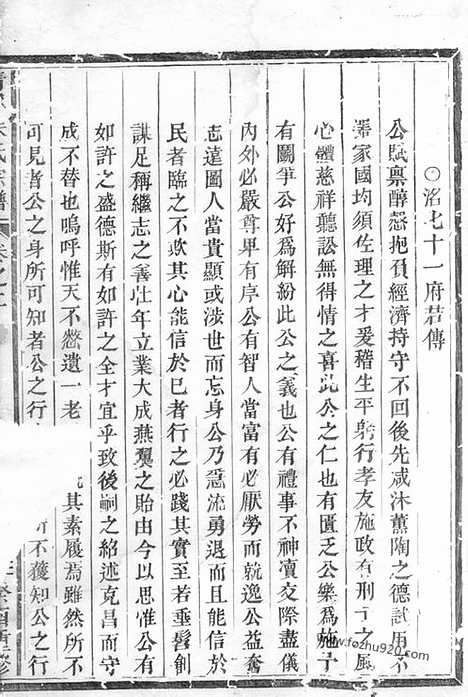 洺七十一府君傳
公賦禀醇慤抱負經濟持守不回後先咸沐薰陶之德試用不
家國均須佐理之才爰稽生平躬行孝友施政有刑于之風
心體慈祥聽訟無得情之喜此公之仁也有匱乏公樂爲施予
有鬬爭公好爲解紛此公之義也公有禮事不神瀆交際盡儀
內外必嚴尊卑有序公有智人當富有必厭勞而就逸公益奮
志遠圖人當貴顯或溺志而忘身公乃急流勇退而且能信於
民者臨之不欺其心能信於已者行之必踐其實至若垂髫創
謀足稱繼志之善壯年立業大成燕翼之貽由今以思惟公有
如許之盛德斯有如許之全才宜乎致後嗣之紹述克昌而守
成不替也嗚呼惟天不憖遺一老 其素履焉雖然所不
可見者公之身所可知者公之行 所不獲知公之行
氏宗譜 卷之
www.fozhu920.com